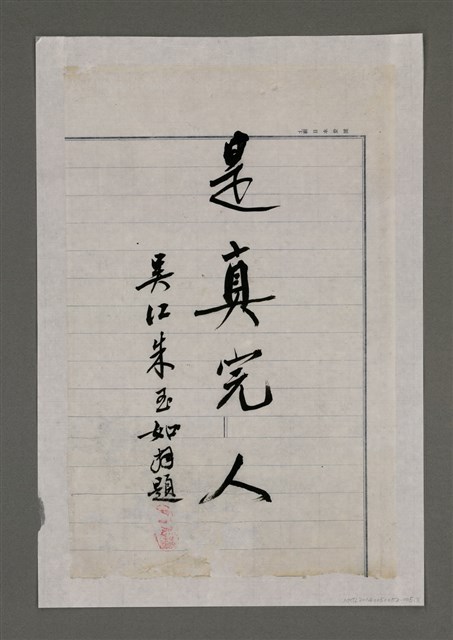 是真完人
吳江朱玉如拜題